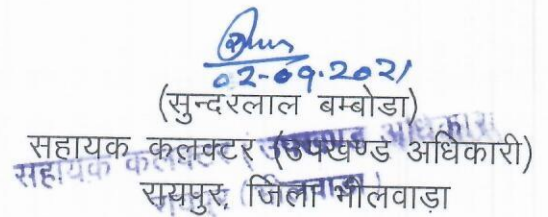 02-09-2021
(सुन्दरलाल बम्बोडा)
सहायक कलक्टर (उपखण्ड अधिकारी)
सहायक कलक्टर उपखण्ड अधिकारी
रायपुर, जिला भीलवाड़ा